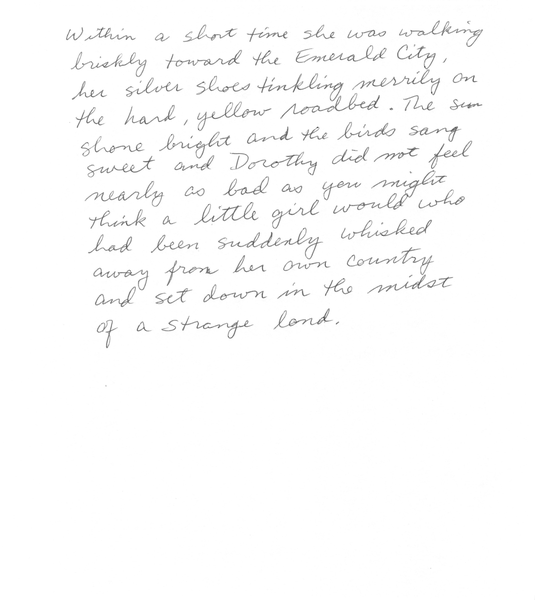 Within a short time she was walking
briskly toward the Emerald City,
her silver shoes tinkling merrily on
the hard, yellow roadbed. The sun
shone bright and the birds sang
sweet and Dorothy did not feel
nearly as bad as you might
think a little girl would who
had been suddenly whisked
away from her own country
and set down in the midst
of a strange land.